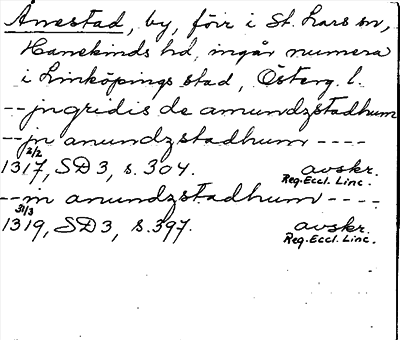 Ånestad, by, förr i St. Lars sn,
Hanekinds hd, ingår numera
i Linköpings stad, Österg. l.
-- jngridis de amundzstadhum
-- jn amundzstadhum ----
2/2
1317, SD 3, s. 304. avskr.
Reg. Eccl. Linc.
-- in amundzstadhum ----
31/3
1319, SD 3, s. 397. avskr.
Reg. Eccl. Linc.